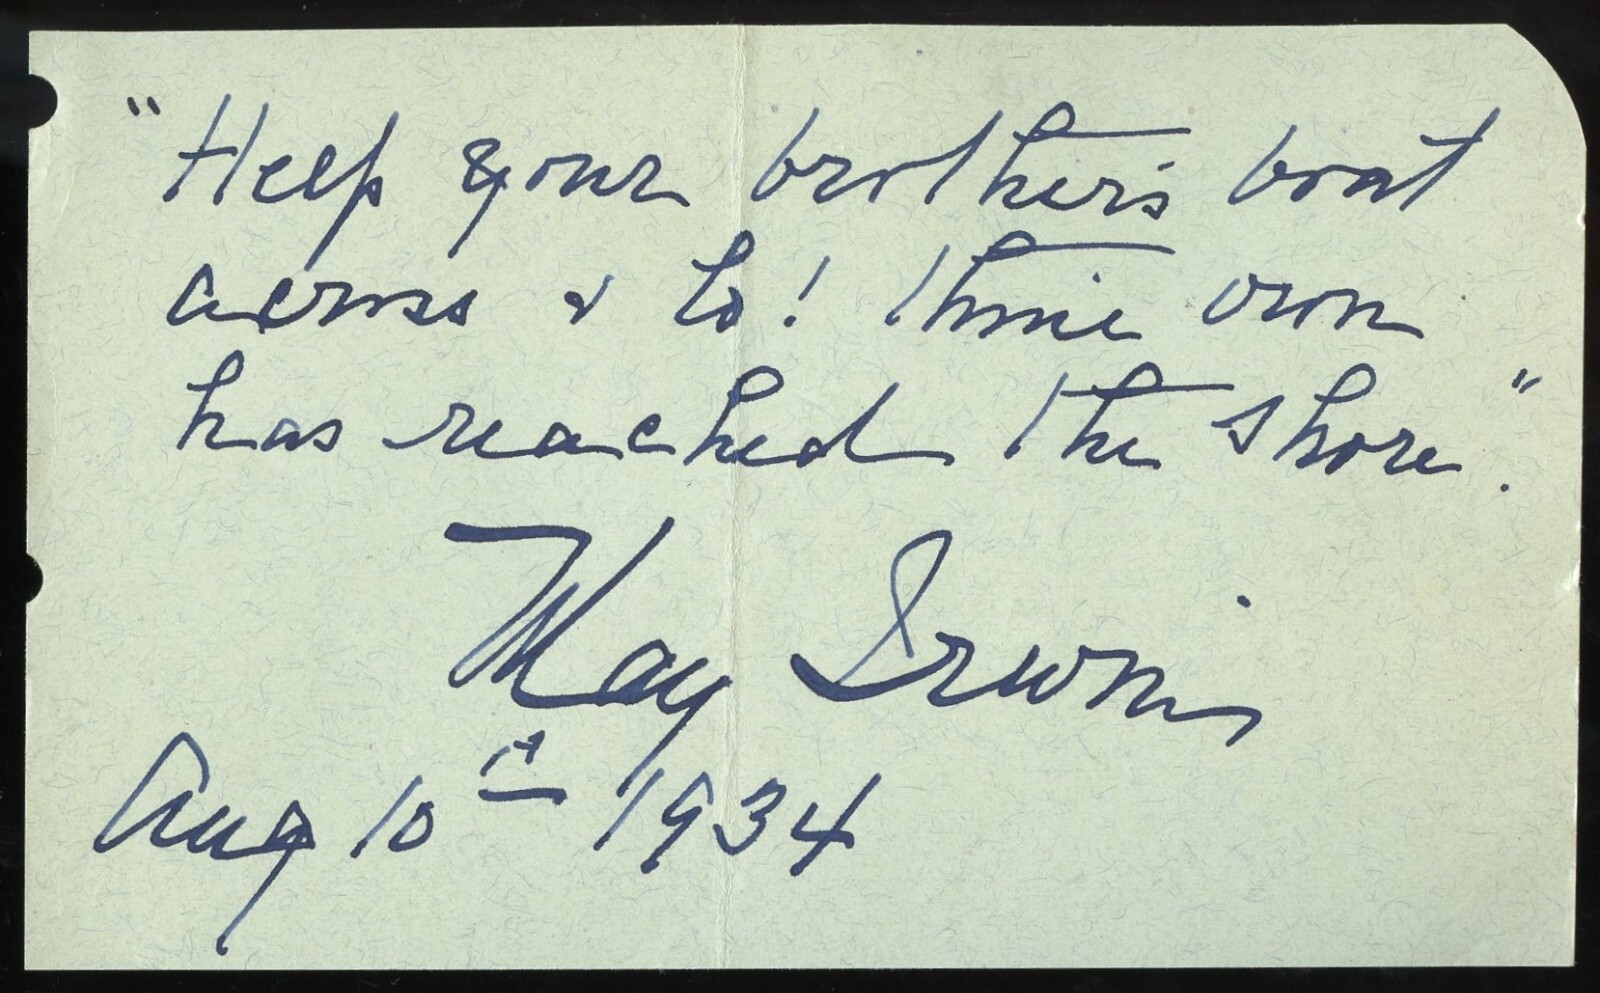 "Help your brother's boat
across & lo! thine own
has reached the shore."
May Irwin
Aug 10th 1934